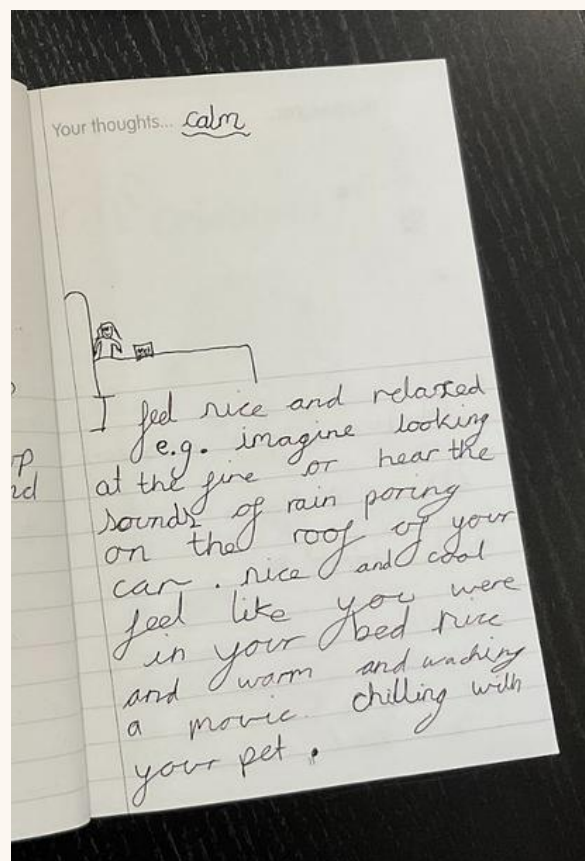 Your thoughts... calm
I feel nice and relaxed
e.g. imagine looking
at the fire or hear the
sounds of rain poring
on the roof of your
car . nice and cool
feel like you were
in your bed nice
and warm and waching
a movie. chilling with
your pet .